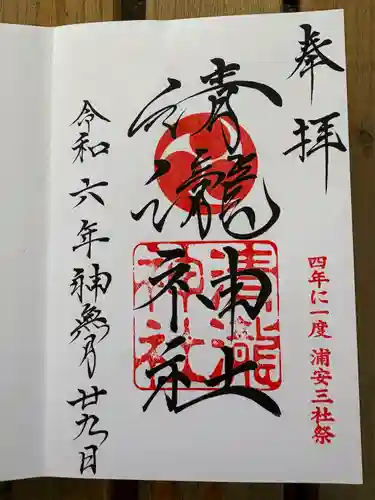 奉拝
四年に一度 浦安三社祭
清瀧神社
清瀧
神社
令和六年神無月廿九日